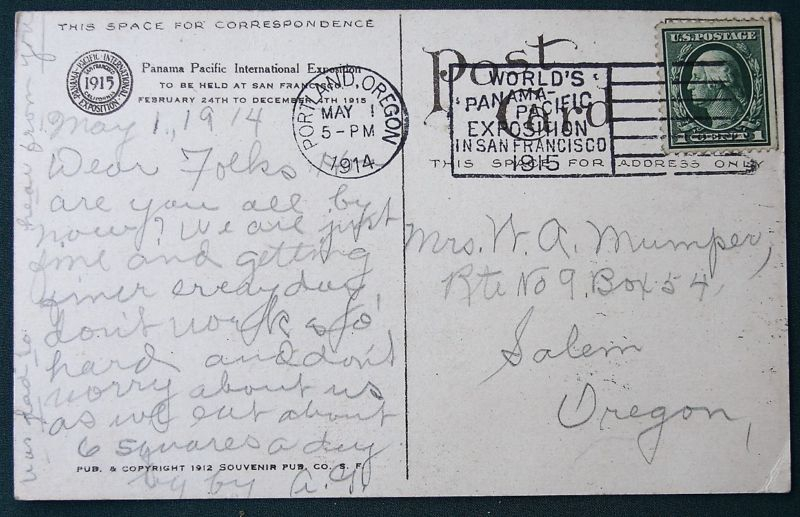 THIS SPACE FOR CORRESPONDENCE
PANAMA-PACIFIC INTERNATIONAL EXPOSITION
SAN FRANCISCO
1915
CALIFORNIA
Panama Pacific International Exposition
TO BE HELD AT SAN FRANCISCO
FEBRUARY 24TH TO DECEMBER 4TH 1915
May 1, 1914
Dear Folks How
are you all by
now? We are just
fine and getting
finer every day
don't work so
hard and don't
worry about us
as we eat about
6 squares a day
by by A.
was glad to hear from you
PUB. & COPYRIGHT 1912 SOUVENIR PUB. CO. S. F.
Post Card
THIS SPACE FOR ADDRESS ONLY
PORTLAND, OREGON
MAY 1
5-PM
1914
WORLD'S
PANAMA-
PACIFIC
EXPOSITION
IN SAN FRANCISCO
1915
U.S. POSTAGE
1 CENT 1
Mrs. W. A. Mumper,
Rte No 9, Box 54,
Salem
Oregon,